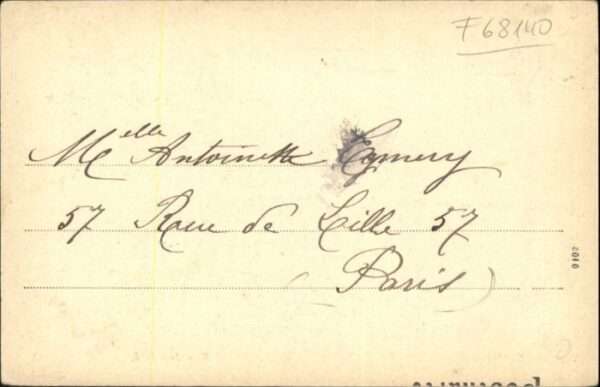 F68140
Melle Antoinette Eymery
57 Rue de Lille 57
(Paris)
2010